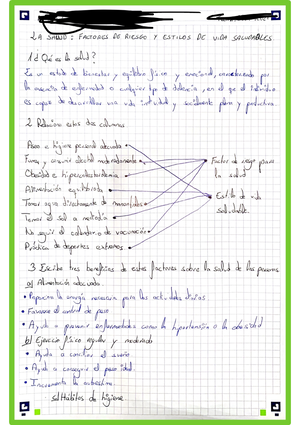 LA SALUD: FACTORES DE RIESGO Y ESTILOS DE VIDA SALUDABLES
1. ¿Qué es la salud?
Es un estado de bienestar y equilibrio físico y emocional, considerando por
la ausencia de enfermedad o cualquier tipo de dolencia, en el que el individuo
es capaz de desarrollar una vida individual y socialmente plena y productiva.
2. Relaciona estas dos columnas
Aseo e higiene personal adecuada
Fumar y consumir alcohol moderadamente
Factor de riesgo para
la salud
Obesidad e hipercolesterolemia
Alimentación equilibrada
Estilo de vida
saludable.
Tomar agua directamente de manantiales
Tomar el sol a mediodía
No seguir el calendario de vacunación
Práctica de deportes extremos
3. Escribe tres beneficios de estos factores sobre la salud de las personas
a) Alimentación adecuada.
• Proporciona la energía necesaria para las actividades diarias.
• Favorece el control de peso
• Ayuda a prevenir enfermedades como la hipertensión o la obesidad
b) Ejercicio físico regular y moderado
• Ayuda a conciliar el sueño
• Ayuda a conseguir el peso ideal.
• Incrementa la autoestima.
Hábitos de higiene